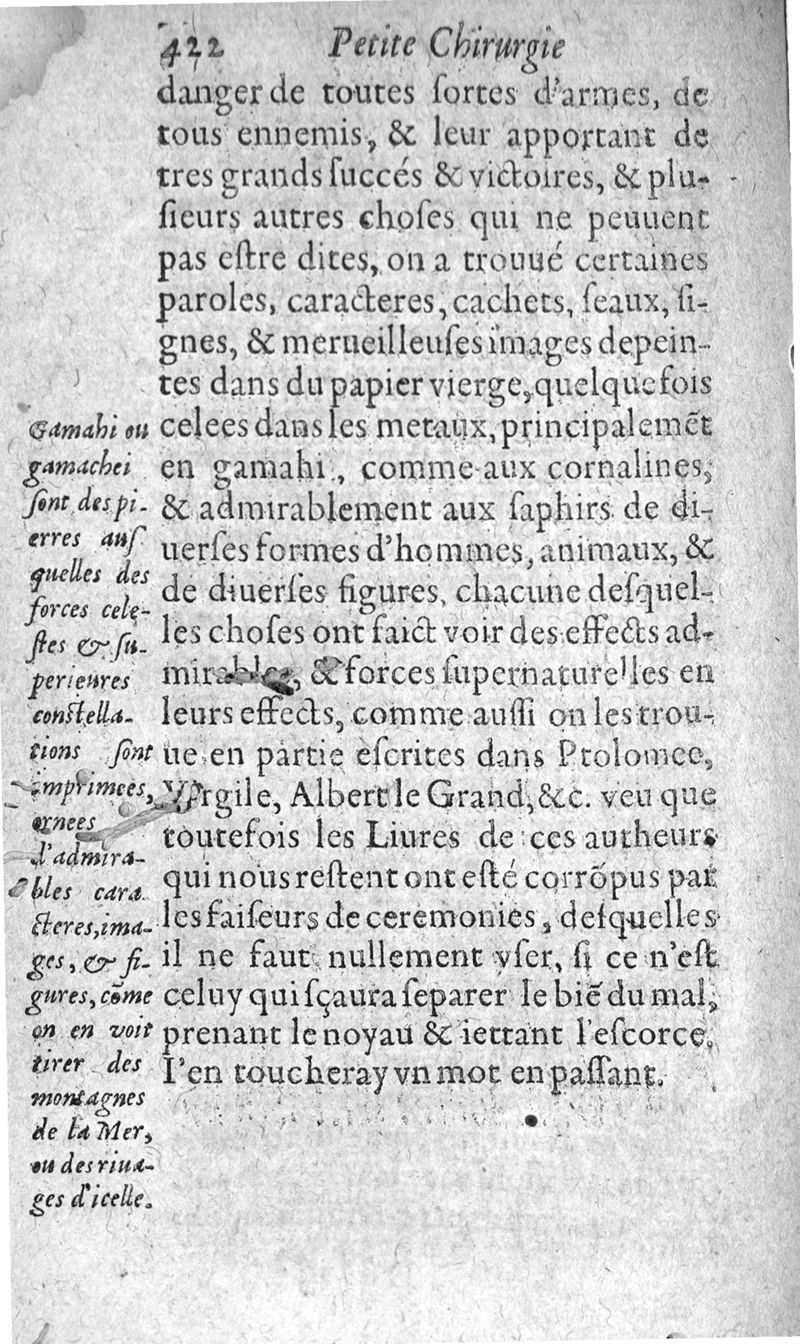 422 Petite Chirurgie
danger de toutes ſortes d'armes, de
tous ennemis, & leur apportant de
tres grands ſuccés & victoires, & plu-
ſieurs autres choſes qui ne peuuent
pas eſtre dites, on a trouué certaines
paroles, caracteres, cachets, ſeaux, ſi-
gnes, & merueilleuſes images depein-
tes dans du papier vierge, quelquefois
celees dans les metaux, principalemẽt
en gamahi, comme aux cornalines,
& admirablement aux ſaphirs de di-
uerſes formes d'hommes, animaux, &
de diuerſes figures, chacune deſquel-
les choſes ont faict voir des effects ad-
mirables, & forces ſupernaturelles en
leurs effects, comme auſſi on les trou-
ue en partie eſcrites dans Ptolomee,
Virgile, Albert le Grand, &c. veu que
toutefois les Liures de ces autheurs
qui nous reſtent ont eſté corrõpus par
les faiſeurs de ceremonies, deſquelles
il ne faut nullement vſer, ſi ce n'eſt
celuy qui ſçaura ſeparer le biẽ du mal,
prenant le noyau & iettant l'eſcorce.
I'en toucheray vn mot en paſſant.
Gamahi ou
gamachei
ſont des pi-
erres auſ
quelles des
forces cele-
ſtes & ſu-
perieures
conſtella-
tions ſont
imprimees,
ornees
d'admira-
bles cara
cteres, ima-
ges, & fi-
gures, cõme
on en voit
tirer des
montagnes
de la Mer,
ou des riua-
ges d'icelle.